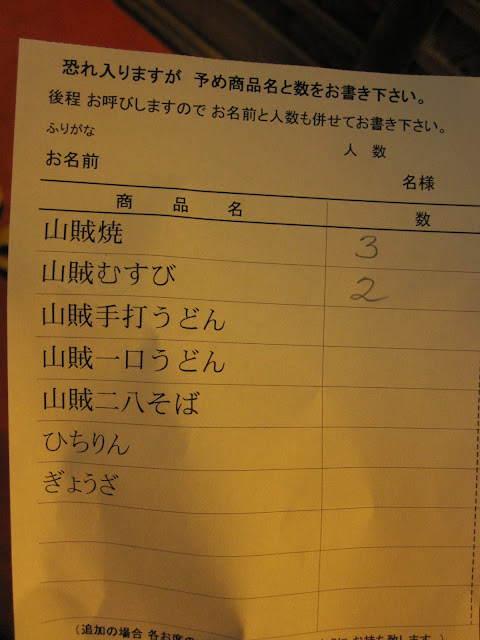 恐れ入りますが 予め商品名と数をお書き下さい。
後程 お呼びしますので お名前と人数も併せてお書き下さい。
ふりがな
人 数
お名前
名様
商 品 名 数
山賊焼 3
山賊むすび 2
山賊手打うどん
山賊一口うどん
山賊二八そば
ひちりん
ぎょうざ
(追加の場合 各お席の お持ち致します。)